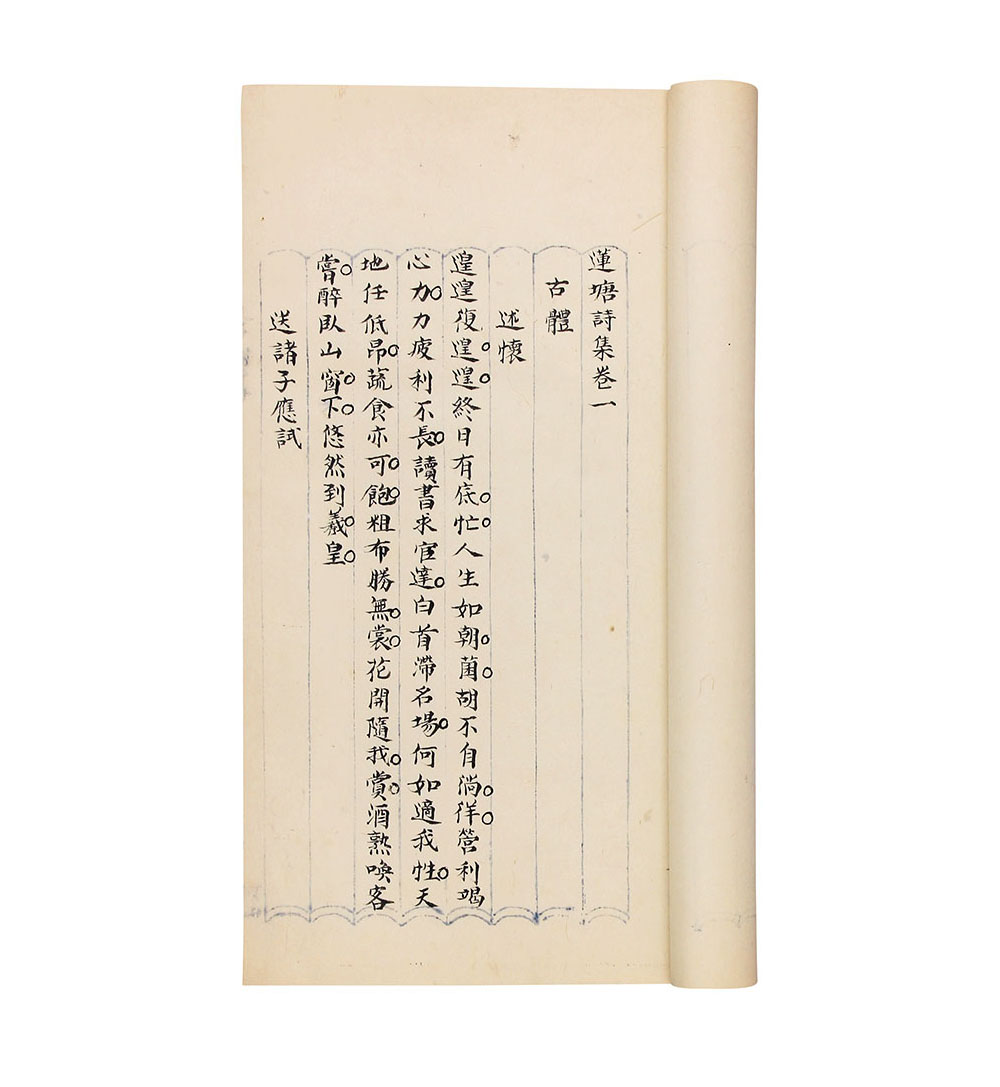 蓮塘詩集卷一
古體
述懷
遑遑復遑遑終日有底忙人生如朝菌胡不自淌徉營利竭
心力力疲利不長讀書求宦達白首滯名場何如適我性天
地任低昂蔬食亦可飽粗布勝無裳花開隨我賞酒熟喚客
嘗醉臥山窗下悠然到羲皇
送諸子應試